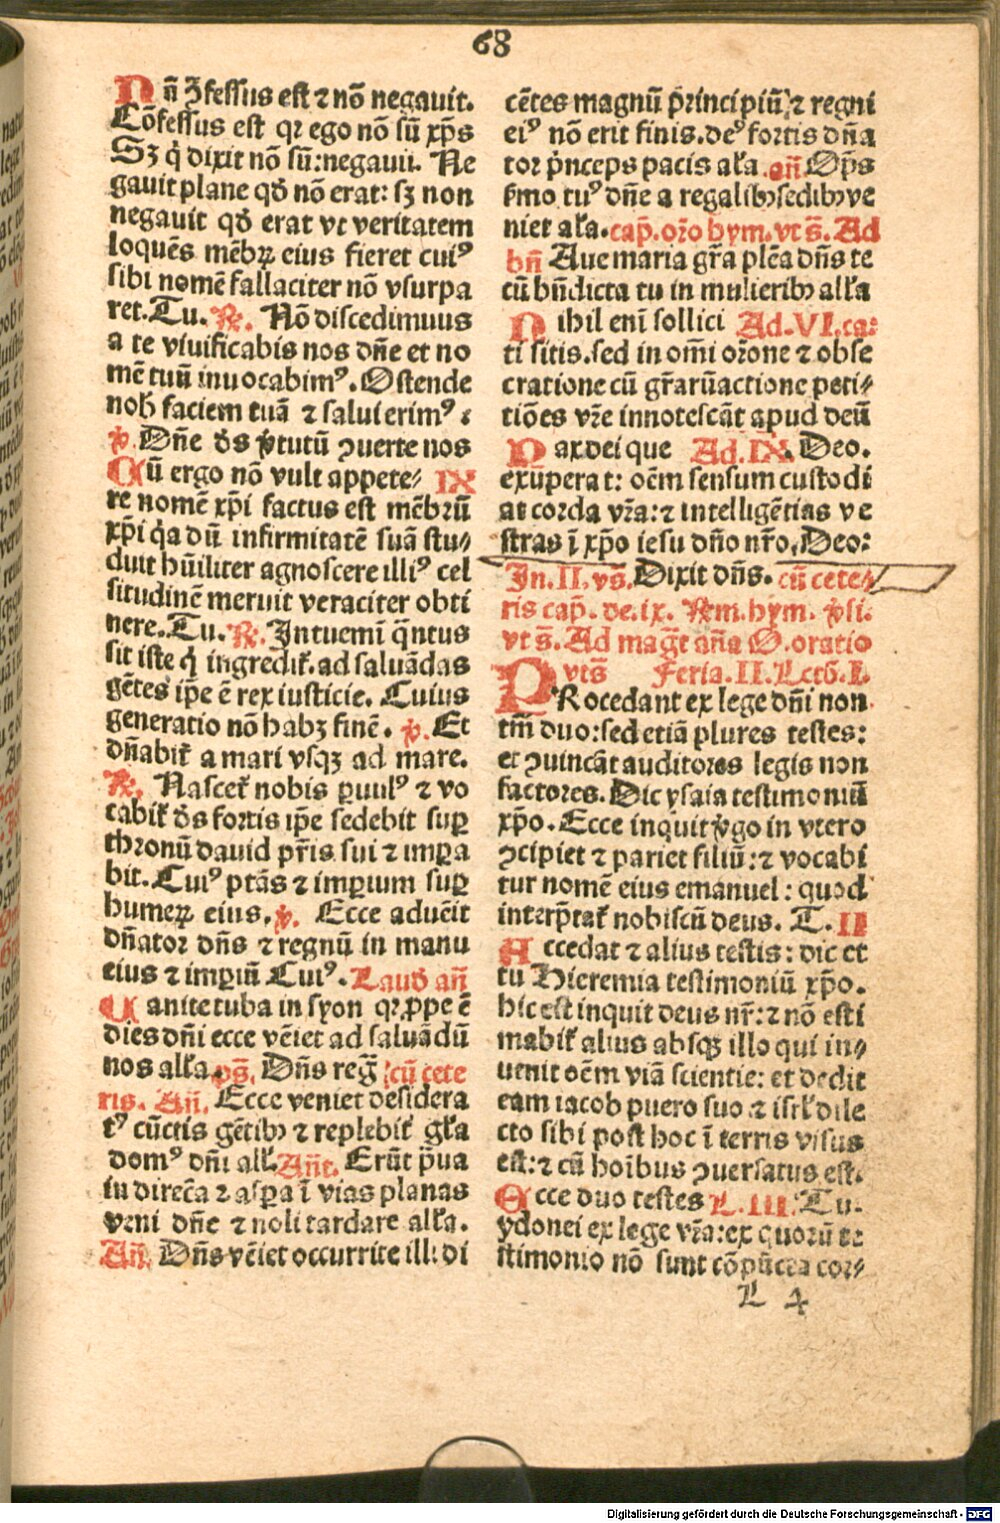 68
Nñ ꝯfessus est ⁊ nõ negauit.
Cõfessus est qꝛ ego nõ sũ xp̃s
Sꝫ q̇ dixit nõ sũ: negauit. Ne
gauit plane qð nõ erat: sꝫ non
negauit qð erat vt veritatem
loquẽs mẽbꝝ eius fieret cuiꝰ
sibi nomẽ fallaciter nõ vsurpa
ret. Tu. ℟. Nõ discedimus
a te viuificabis nos dñe et no
mẽ tuũ inuocabimꝰ. Ostende
nob̃ faciem tuã ⁊ salui erimꝰ.
℣. Dñe d̃s v̓tutũ ꝯuerte nos
Cũ ergo nõ vult appete⸗ IX
re nomẽ xp̃i factus est mẽbrũ
xp̃i q̇a dũ infirmitatẽ suã stu⸗
duit hũiliter agnoscere illiꝰ cel
situdinẽ meruit veraciter obti
nere. Tu. ℟. Intuemi q̃ntus
sit iste q̇ ingredit᷑. ad saluãdas
gẽtes ip̃e ẽ rex iusticie. Cuius
generatio nõ habꝫ finẽ. ℣. Et
dñabit᷑ a mari vsqꝫ ad mare.
℟. Nascet᷑ nobis ꝑuulꝰ ⁊ vo
cabit᷑ d̃s fortis ip̃e sedebit suꝑ
thronũ dauid pr̃is sui ⁊ imꝑa
bit. Cuiꝰ ptãs ⁊ imꝑium suꝑ
humeꝝ eius. ℣. Ecce aduẽit
dñator dñs ⁊ regnũ in manu
eius ⁊ imꝑiũ Cuiꝰ. Laud̃ añ
Canite tuba in syon qꝛ ꝓpe ẽ
dies dñi ecce vẽiet ad saluãdũ
nos alĺa. ps̃. Dñs reg̃ cũ cete
ris. Añ. Ecce veniet desidera
tꝰ cũctis gẽtibꝫ ⁊ replebit᷑ gĺa
domꝰ dñi alĺ. Añt. Erũt p̃ua
in direc̃a ⁊ asꝑa ĩ vias planas
veni dñe ⁊ noli tardare alĺa.
Añ. Dñs vẽiet occurrite illi di
cẽtes magnũ principiũ ⁊ regni
eiꝰ nõ erit finis. deꝰ fortis dña
tor p̃nceps pacis aĺa. añ Op̃s
s̓mo tuꝰ dñe a regalibꝫ sedibꝫ ve
niet aĺa. cap̃. or̃o hym. vt s̃. Ad
bñ Aue maria gr̃a plẽa dñs te
cũ bñdicta tu in mulieribꝫ alĺa
Nihil eni sollici Ad. VI. ca:
ti sitis. sed in om̃i or̃one ⁊ obse
cratione cũ gr̃arũ actione peti⸗
tiões vr̃e innotescãt apud deũ
Pax dei que Ad. IX. Deo.
exuperat: oẽm sensum custodi
at corda vr̃a: ⁊ intelligẽtias ve
stras ĩ xp̃o iesu dño nr̃o. Deo:
In. II. vs̃. Dixit dñs. cũ cete⸗
ris cap̃. de. ix. ℟m. hym. ℣si.
vt s̃. Ad mag̃t añа O. oratio
vts̃ Feria. II. Lctõ. I.
PRocedant ex lege dñi non
tm̃ duo: sed etiã plures testes:
et ꝯuincãt auditores legis non
factores. Dic ysaia testimoniũ
xp̃o. Ecce inquit v̓go in vtero
ꝯcipiet ⁊ pariet filiũ: ⁊ vocabi
tur nomẽ eius emanuel: quod
interp̃tat᷑ nobiscũ deus. T. II
Accedat ⁊ alius testis: dic et
tu Hieremia testimoniũ xp̃o.
hic est inquit deus nr̃: ⁊ nõ esti
mabit᷑ alius absqꝫ illo qui in⸗
uenit oẽm viã scientie: et dedit
eam iacob puero suo ⁊ isrĺ dile
cto sibi post hoc ĩ terris visus
est: ⁊ cũ hoĩbus ꝯuersatus est.
Ecce duo testes L. III. Tu.
ydonei ex lege vr̃a: ex quorũ te
stimonio nõ sunt cõpũcta cor⸗
L 4
Digitalisierung gefördert durch die Deutsche Forschungsgemeinschaft - DFG